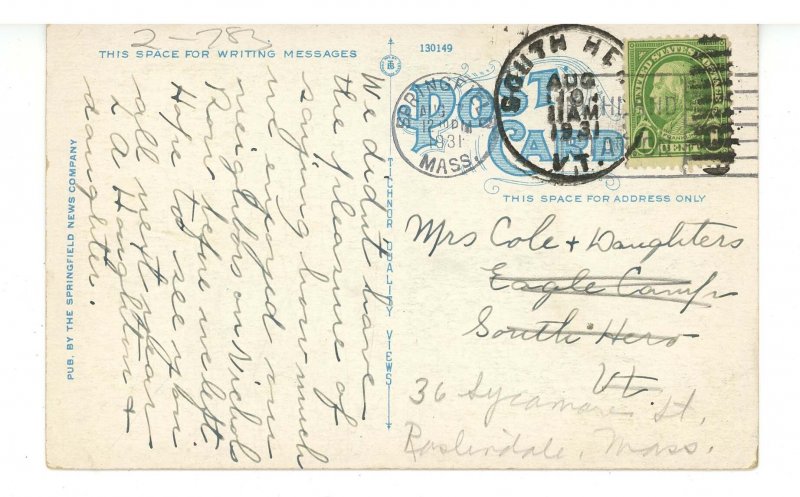 2-783
THIS SPACE FOR WRITING MESSAGES
130149
POST CARD
THIS SPACE FOR ADDRESS ONLY
SPRINGF
AUG
1931
MASS.
SOUTH HE
AUG
10
11 AM
1931
VT.
UNITED STATES POSTAGE
1 CENT 1
We didn't have
the pleasure of
saying how much
we enjoyed our
neighbors on Nichols
Row before we left
Hope to see you
all next year
L A Houghton &
daughter.
TICHNOR QUALITY VIEWS
PUB. BY THE SPRINGFIELD NEWS COMPANY
Mrs Cole & Daughters
Eagle Camp
South Hero
Vt
36 Sycamore St.
Roslindale, Mass.